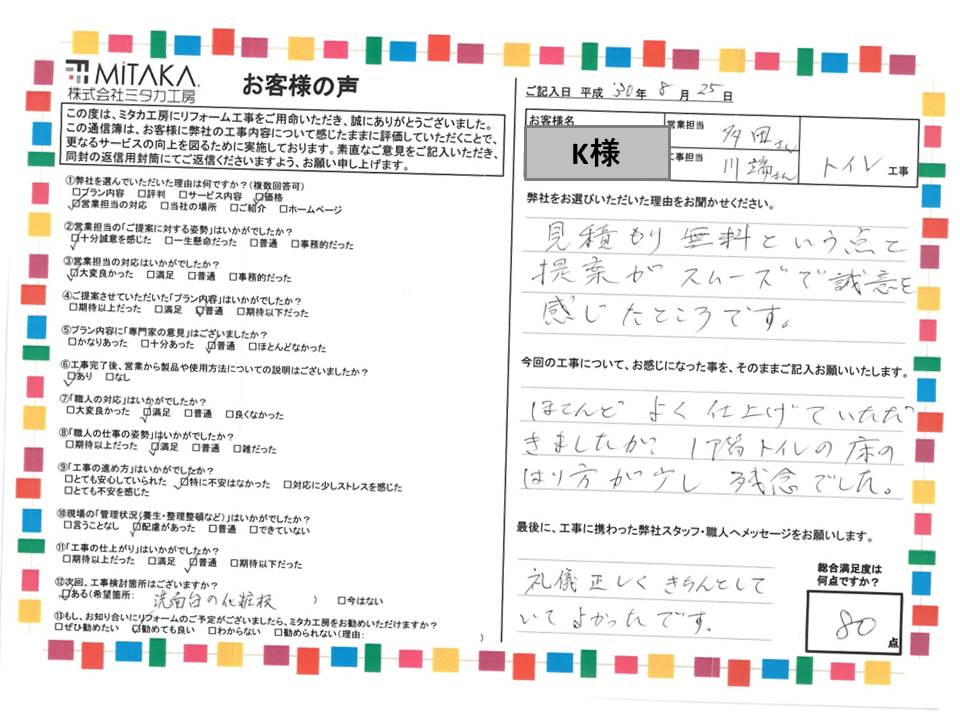 MiTAKA.
株式会社ミタカ工房
お客様の声
この度は、ミタカ工房にリフォーム工事をご用命いただき、誠にありがとうございました。
この通信簿は、お客様に弊社の工事内容について感じたままに評価していただくことで、
更なるサービスの向上を図るために実施しております。素直なご意見をご記入いただき、
同封の返信用封筒にてご返信くださいますよう、お願い申し上げます。
①弊社を選んでいただいた理由は何ですか？（複数回答可）
□プラン内容 □評判 □サービス内容 ☑価格
☑営業担当の対応 □当社の場所 □ご紹介 □ホームページ
②営業担当の「ご提案に対する姿勢」はいかがでしたか？
☑十分誠意を感じた □一生懸命だった □普通 □事務的だった
③営業担当の対応はいかがでしたか？
☑大変良かった □満足 □普通 □事務的だった
④ご提案させていただいた「プラン内容」はいかがでしたか？
□期待以上だった □満足 ☑普通 □期待以下だった
⑤プラン内容に「専門家の意見」はございましたか？
□かなりあった □十分あった ☑普通 □ほとんどなかった
⑥工事完了後、営業から製品や使用方法についての説明はございましたか？
☑あり □なし
⑦「職人の対応」はいかがでしたか？
□大変良かった ☑満足 □普通 □良くなかった
⑧「職人の仕事の姿勢」はいかがでしたか？
□期待以上だった ☑満足 □普通 □雑だった
⑨「工事の進め方」はいかがでしたか？
□とても安心していられた ☑特に不安はなかった □対応に少しストレスを感じた
□とても不安を感じた
⑩現場の「管理状況（養生・整理整頓など）」はいかがでしたか？
□言うことなし ☑配慮があった □普通 □できていない
⑪「工事の仕上がり」はいかがでしたか？
□期待以上だった □満足 ☑普通 □期待以下だった
⑫次回、工事検討箇所はございますか？
☑ある（希望箇所： 洗面台の化粧板 ） □今はない
⑬もし、お知り合いにリフォームのご予定がございましたら、ミタカ工房をお勧めいただけますか？
□ぜひ勧めたい ☑勧めても良い □わからない □勧められない（理由： ）
ご記入日 平成 '30 年 8 月 25 日
お客様名
K様
営業担当 多田さん
工事担当 川端さん
トイレ 工事
弊社をお選びいただいた理由をお聞かせください。
見積もり無料という点と
提案がスムーズで誠意を
感じたところです。
今回の工事について、お感じになった事を、そのままご記入お願いいたします。
ほとんど よく仕上げていただ
きましたが、1階トイレの床の
はり方が少し残念でした。
最後に、工事に携わった弊社スタッフ・職人へメッセージをお願いします。
礼儀正しくきちんとして
いてよかったです。
総合満足度は
何点ですか？
80
点